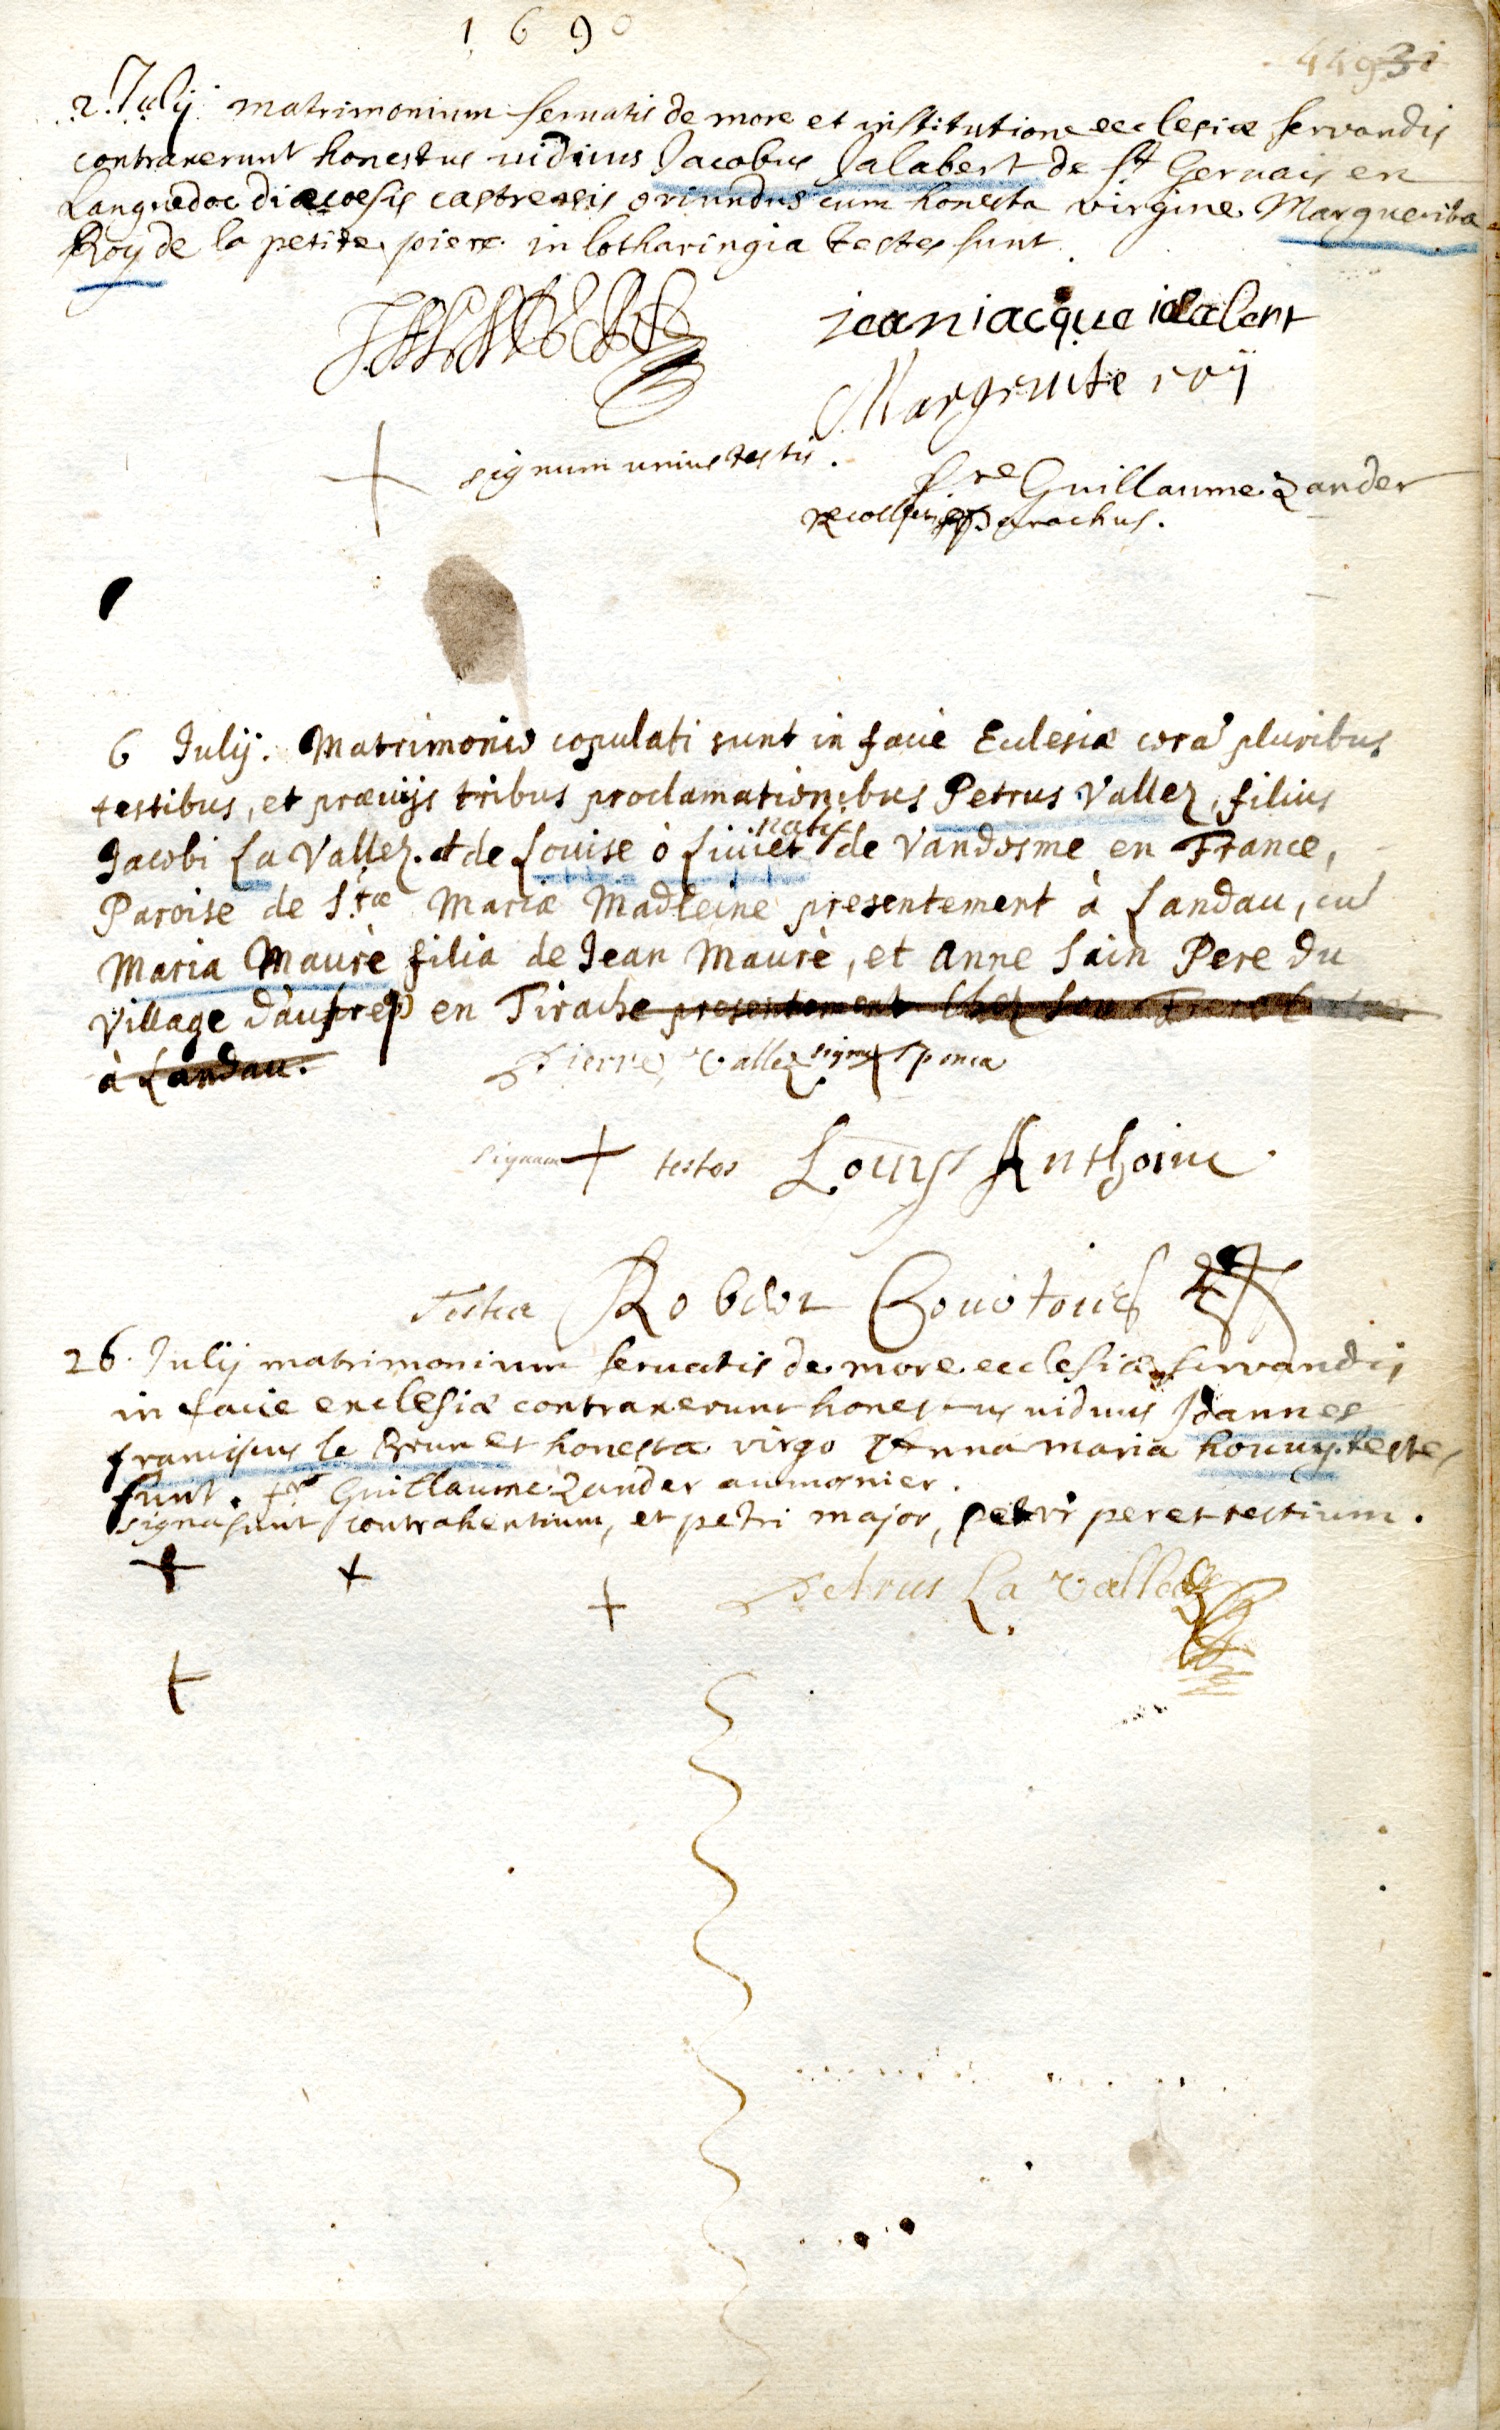 1690
2 July matrimonium servatis de more et institutione ecclesiæ servandis
contraxerunt honestus viduus Jacobus Jalabert de st Gervais en
Languedoc diæcoesis castrensis oriundus cum honesta virgine Margueritta
Roy de la petite piere in lotharingia testes sunt
jean jacque ialabert
Margruite roy
signum unius testis.
fre Guillaume zander
parochus.
6 July. Matrimonio copulati sunt in facie Eclesiæ corã pluribus
testibus, et prævijs tribus proclamationibus Petrus Vallez, filius
Jacobi La Vallez. et de Louise ò Liviet natus de Vandosme en France,
Paroise de S.tæ Mariæ Madleine presentement à Landau, cũ
Maria Maurè filia de Jean Maurè, et Anne Sain Pere du
village en Tirache presentement chez son Frere
à Landau.
Pierre Vallez signũ Sponsa
signum + testes Louys Anthoine
Testes Robert
26. Julij matrimonium servatis de more ecclesiæ servandis
in facie ecclesiæ contraxerunt honestus viduus Joannes
franciscus le Brun et honesta virgo Anna maria houuy testes
sunt. fr Guillaume Zander aumosnier.
signa sunt contrahentium, et petri major, petri peret testium.
Petrus La Vallez